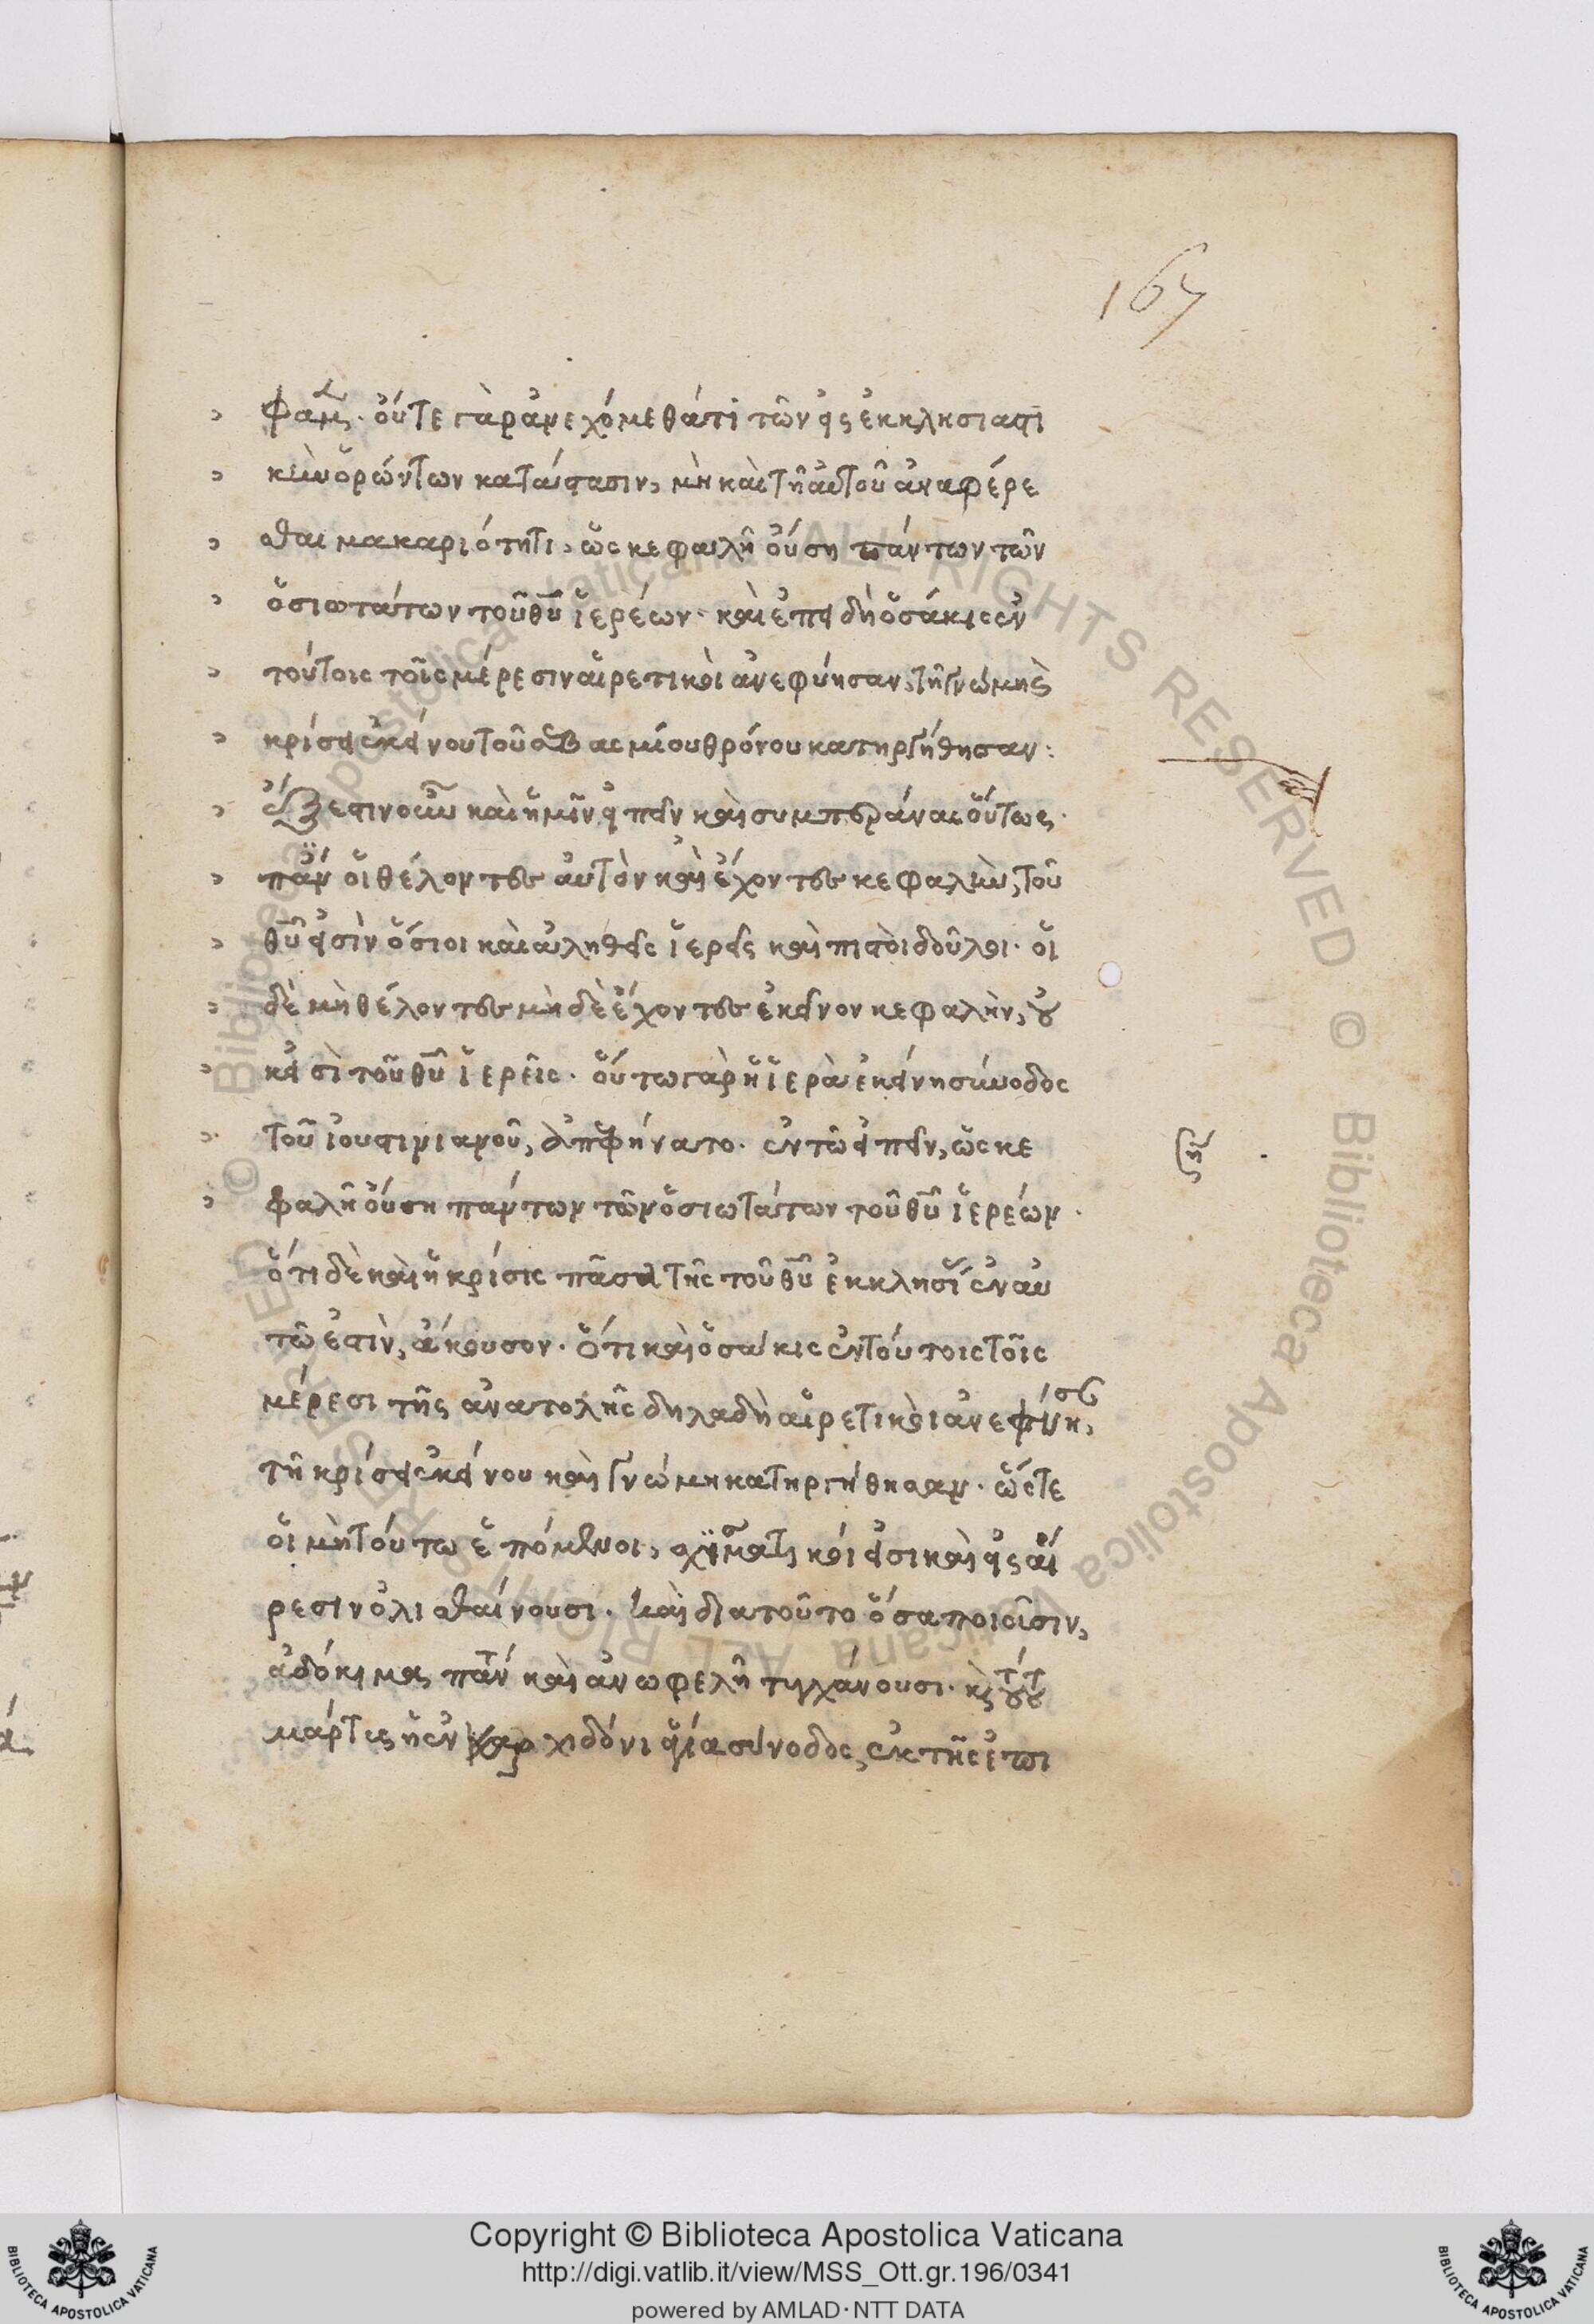 167
φαμ. οὔτε γὰρ ἀνεχόμεθά τι τῶν εἰς ἐκκλησιαστι
κὴν ὁρώντων κατάστασιν, μὴ καὶ τῆ αὐτοῦ ἀναφέρε
σθαι μακαριότητι, ὡς κεφαλῆ οὔση πάντων τῶν
ὁσιωτάτων τοῦ θυ ἱερέων. καὶ ἐπειδὴ ὁσάκις ἐν
τούτοις τοῖς μέρεσιν αἱρετικοὶ ἀνεφύησαν, τῆ γνώμη καὶ
κρίσει ἐκείνου τοῦ σεβασμίου θρόνου κατηργήθησαν:
ἔξεστιν οὖν καὶ ἡμῖν εἰπεῖν καὶ συμπεράναι οὕτως.
πάντες οἱ θέλοντες αὐτὸν καὶ ἔχοντες κεφαλὴν, τοῦ
θυ εἰσὶν ὅσιοι καὶ ἀληθεῖς ἱερεῖς καὶ πιστοὶ δοῦλοι. οἱ
δὲ μὴ θέλοντες μηδὲ ἔχοντες ἐκεῖνον κεφαλὴν, οὐ
κ εἰσὶ τοῦ θυ ἱερεῖς. οὕτω γὰρ ἡ ἱερὰ ἐκείνη σύνοδος
τοῦ ἰουστινιανοῦ, ἀπεφήνατο. ἐν τῶ εἰπεῖν, ὡς κε
φαλῆ οὔση πάντων τῶν ὁσιωτάτων τοῦ θυ ἱερέων.
ὅτι δὲ καὶ ἡ κρίσις πᾶσα τῆς τοῦ θυ ἐκκλησίας ἐν αὐ
τῶ ἐστὶν, ἄκουσον. ὅτι καὶ ὁσάκις ἐν τούτοις τοῖς
μέρεσι τῆς ἀνατολῆς δηλαδὴ αἱρετικοὶ ἀνεφύησαν,
τῆ κρίσει ἐκείνου καὶ γνώμη κατηργήθησαν. ὥστε
οἱ μὴ τούτω ἑπόμενοι, σχισματικοί εἰσι καὶ εἰς αἵ
ρεσιν ὀλισθαίνουσι. καὶ διατοῦτο ὅσα ποιοῦσιν,
ἀδόκιμα πάντα καὶ ἀνωφελῆ τυγχάνουσι. καὶ τούτου
μάρτυς ἡ ἐν χαρχιδόνι ἁγία σύνοδος, ἐκ τῆς ἐπι
Copyright © Biblioteca Apostolica Vaticana
http://digi.vatlib.it/view/MSS_Ott.gr.196/0341
powered by AMLAD·NTT DATA